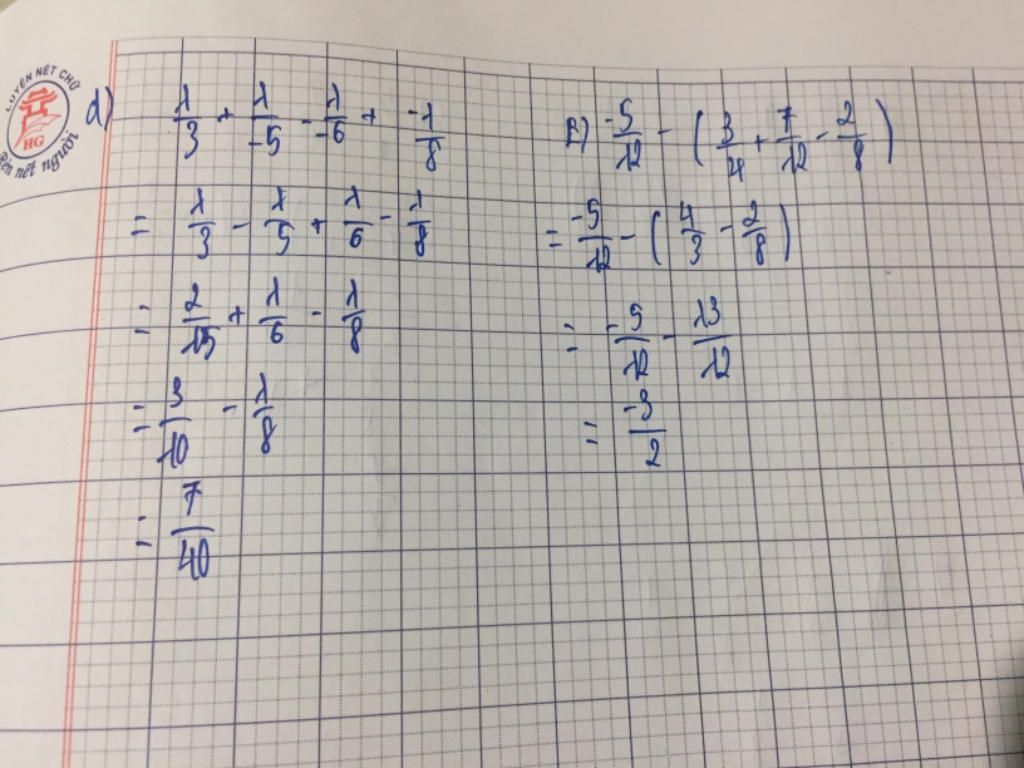 LUYỆN NÉT CHỮ
HG
Rèn nết người
d) 1/3 + 1/-5 - 1/-6 + -1/8
= 1/3 - 1/5 + 1/6 - 1/8
= 2/15 + 1/6 - 1/8
= 3/10 - 1/8
= 7/40
-5/12 - (3/4 + 7/12 - 2/8)
= -5/12 - (4/3 - 2/8)
= -5/12 - 13/12
= -3/2